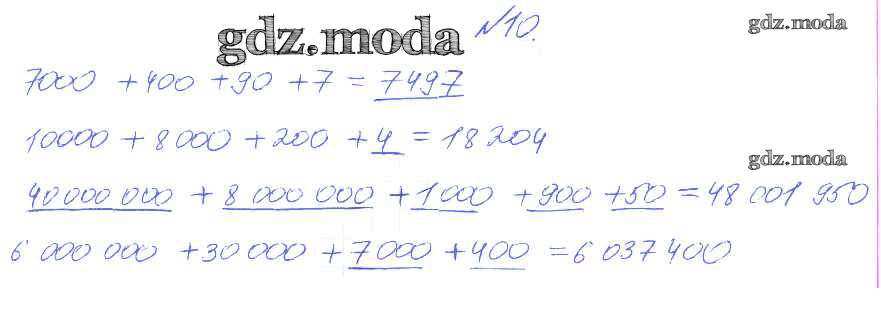 gdz.moda №10. gdz.moda
7000 + 400 + 90 + 7 = 7497
10000 + 8 000 + 200 + 4 = 18 204
gdz.moda
40 000 000 + 8 000 000 + 1 000 + 900 + 50 = 48 001 950
6 000 000 + 30 000 + 7 000 + 400 = 6 037 400